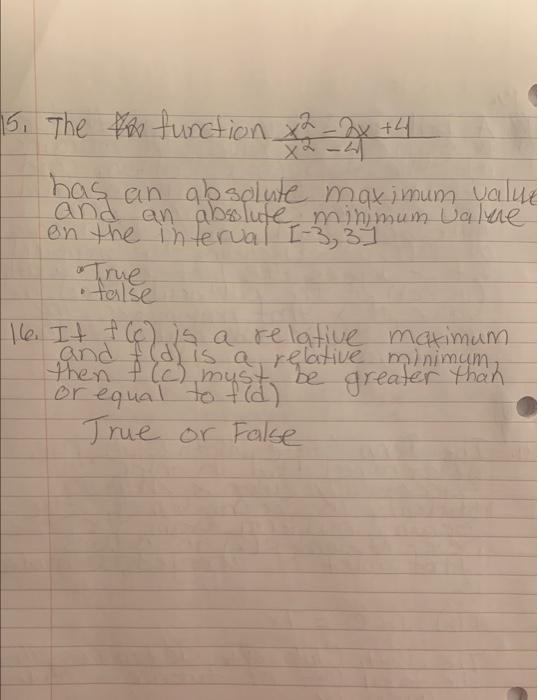 15. The function x² - 2x + 4
x² - 4
has an absolute maximum value
and an absolute minimum value
on the interval [-3, 3]
• True
• false
16. If f(c) is a relative maximum
and f(d) is a relative minimum,
then f(c) must be greater than
or equal to f(d)
True or False